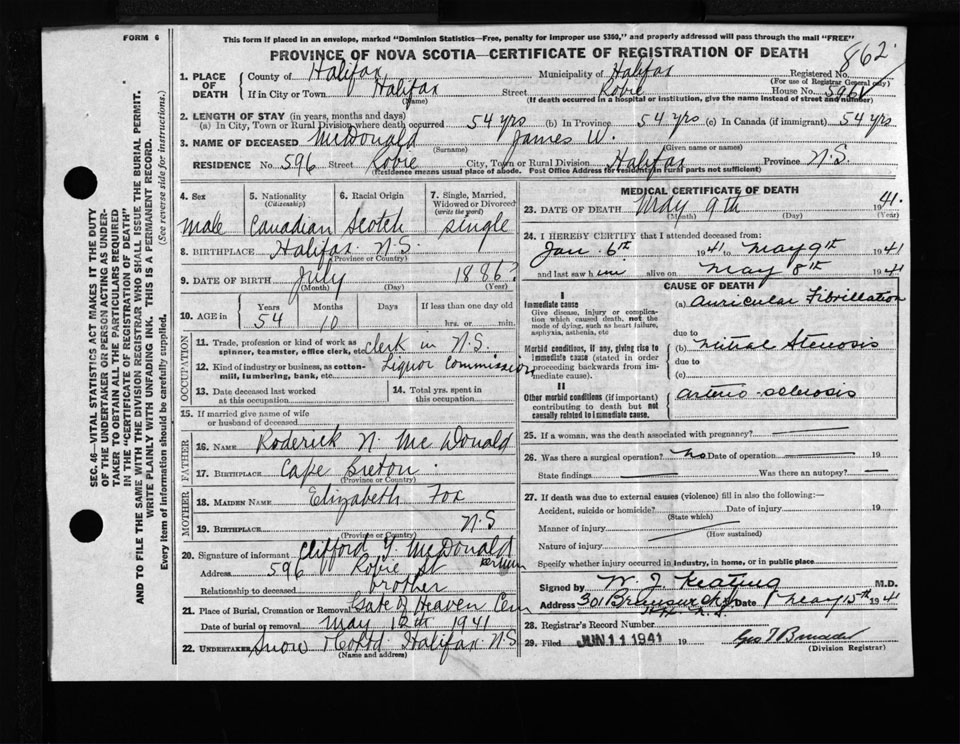 FORM 6
This form if placed in an envelope, marked "Dominion Statistics—Free, penalty for improper use $300," and properly addressed will pass through the mail "FREE"
PROVINCE OF NOVA SCOTIA—CERTIFICATE OF REGISTRATION OF DEATH
862
1. PLACE OF DEATH
County of Halifax Municipality of Halifax Registered No.
(For use of Registrar General only)
If in City or Town Halifax Street Robie House No. 596
(Name) (If death occurred in a hospital or institution, give the name instead of street and number)
2. LENGTH OF STAY (in years, months and days)
(a) In City, Town or Rural Division where death occurred 54 yrs (b) In Province 54 yrs (c) In Canada (if immigrant) 54 yrs
3. NAME OF DECEASED McDonald James W.
(Surname) (Given name or names)
RESIDENCE No. 596 Street Robie City, Town or Rural Division Halifax Province N.S.
(Residence means usual place of abode. Post Office Address for residents in rural parts not sufficient)
4. Sex male
5. Nationality (Citizenship) Canadian
6. Racial Origin Scotch
7. Single, Married, Widowed or Divorced (write the word) single
8. BIRTHPLACE Halifax N.S.
(Province or Country)
9. DATE OF BIRTH July 1886?
(Month) (Day) (Year)
10. AGE in Years Months Days If less than one day old
54 10 hrs. or min.
OCCUPATION
11. Trade, profession or kind of work as spinner, teamster, office clerk, etc. clerk in N.S.
12. Kind of industry or business, as cotton-mill, lumbering, bank, etc. Liquor Commission
13. Date deceased last worked at this occupation
14. Total yrs. spent in this occupation
15. If married give name of wife or husband of deceased
FATHER
16. NAME Roderick N. McDonald
17. BIRTHPLACE Cape Breton
MOTHER
18. MAIDEN NAME Elizabeth Fox
19. BIRTHPLACE N.S
(Province or Country)
20. Signature of informant Clifford Y. McDonald
Address 596 Robie St
Relationship to deceased brother
21. Place of Burial, Cremation or Removal Gate of Heaven Cem
Date of burial or removal May 12th 1941
22. UNDERTAKER Snow & Co Ltd Halifax N.S
(Name and address)
MEDICAL CERTIFICATE OF DEATH
23. DATE OF DEATH May 9th 1941.
(Month) (Day) (Year)
24. I HEREBY CERTIFY that I attended deceased from:
Jan. 6th 1941 to May 9th 1941
and last saw him alive on May 8th 1941
CAUSE OF DEATH
I
Immediate cause
Give disease, injury or complication which caused death, not the mode of dying, such as heart failure, asphyxia, asthenia, etc
(a) Auricular Fibrillation
due to
Morbid conditions, if any, giving rise to immediate cause (stated in order proceeding backwards from immediate cause).
(b) Mitral Stenosis
due to
(c)
II
Other morbid conditions (if important) contributing to death but not causally related to immediate cause.
arterio-sclerosis
25. If a woman, was the death associated with pregnancy?
26. Was there a surgical operation? No Date of operation 19
State findings Was there an autopsy?
27. If death was due to external causes (violence) fill in also the following:—
Accident, suicide or homicide? Date of injury 19
(State which)
Manner of injury
(How sustained)
Nature of injury
Specify whether injury occurred in industry, in home, or in public place
Signed by W. J. Keating M.D.
Address 301 Brunswick St Date May 15th 1941
28. Registrar's Record Number
29. Filed JUN 11 1941 19
(Division Registrar)
SEC. 46—VITAL STATISTICS ACT MAKES IT THE DUTY
OF THE UNDERTAKER OR PERSON ACTING AS UNDER-
TAKER TO OBTAIN ALL THE PARTICULARS REQUIRED
IN THE "CERTIFICATE OF REGISTRATION OF DEATH"
AND TO FILE THE SAME WITH THE DIVISION REGISTRAR WHO SHALL ISSUE THE BURIAL PERMIT.
WRITE PLAINLY WITH UNFADING INK. THIS IS A PERMANENT RECORD.
Every item of information should be carefully supplied. (See reverse side for instructions.)